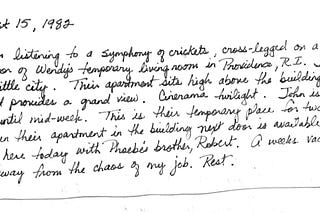 st 15, 1982
listening to a symphony of crickets, cross-legged on a
or of Wendy's temporary living room in Providence, R.I.
little city. Their apartment sits high above the building
d provides a grand view. Cinerama twilight. John is
until mid-week. This is their temporary place for two
en their apartment in the building next door is available
here today with Phoebe's brother, Robert. A weeks vac
way from the chaos of my job. Rest.